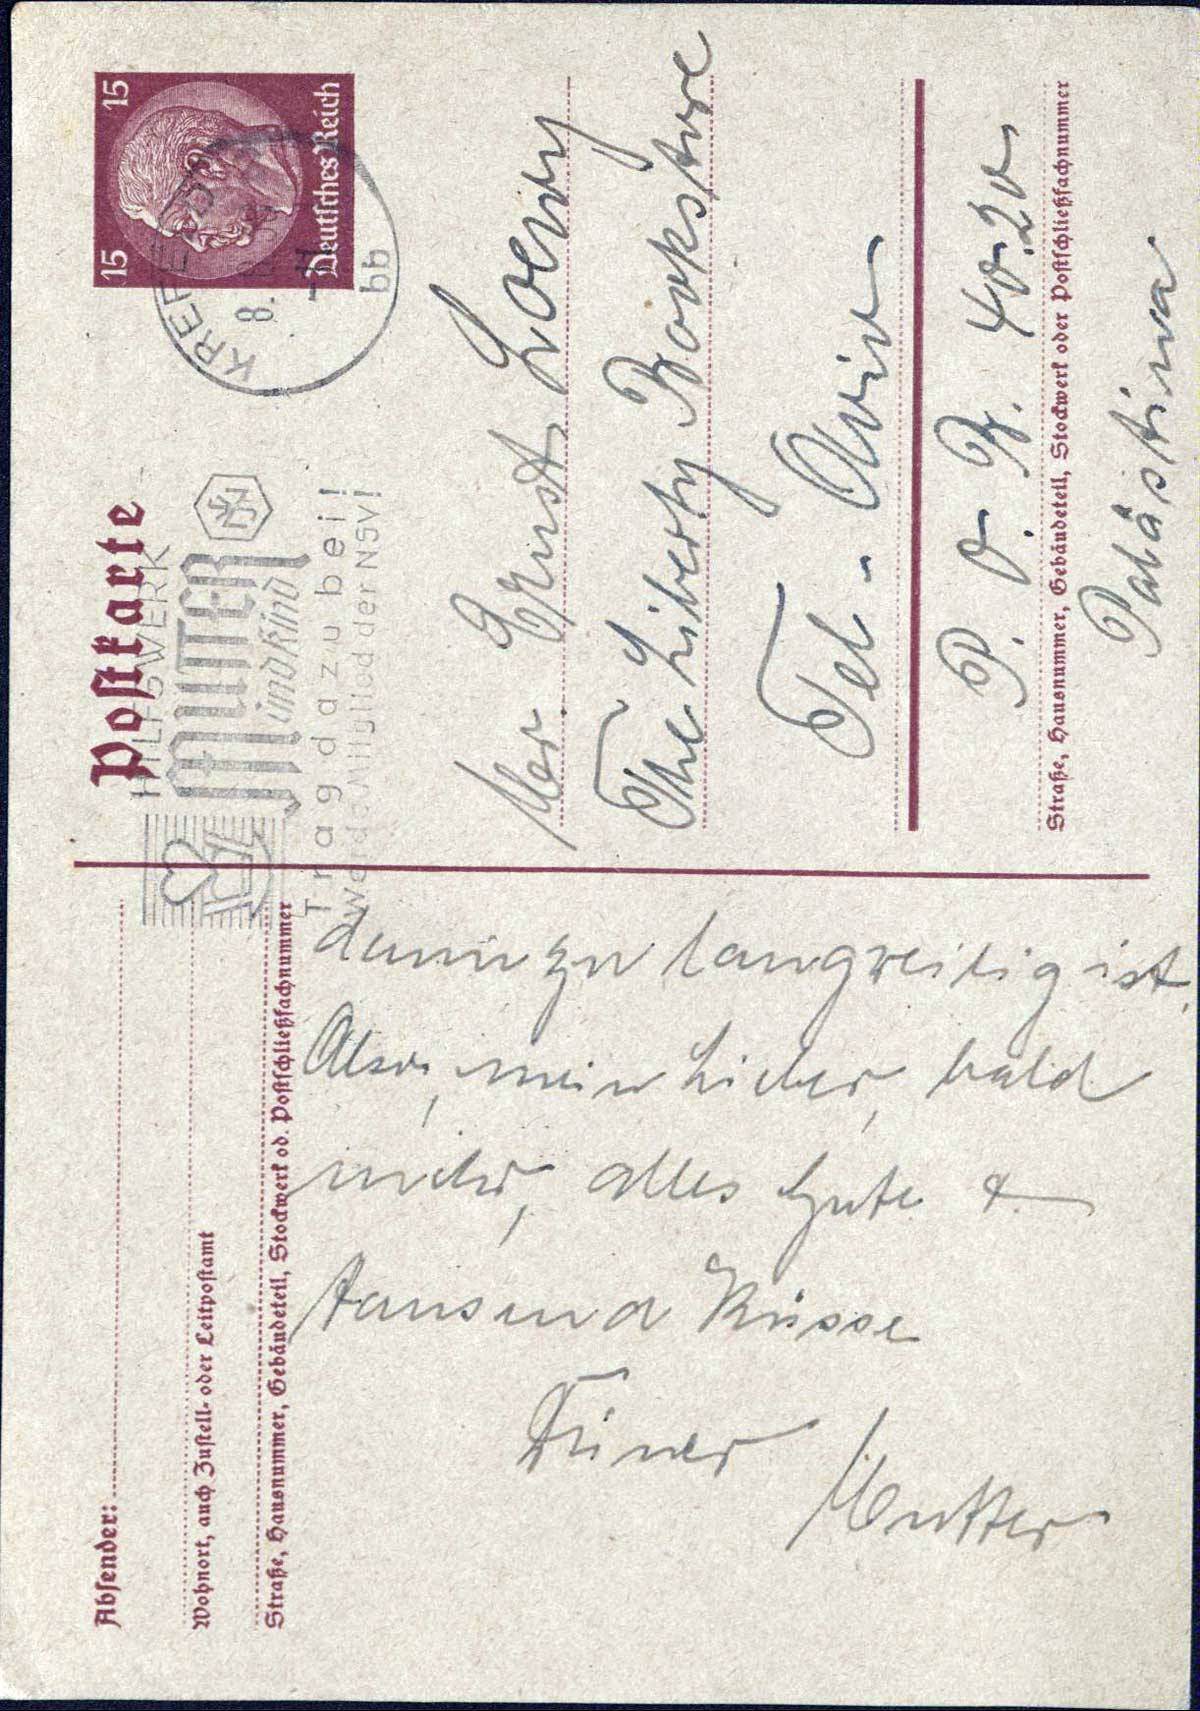 Absender:
Wohnort, auch Zustell- oder Leitpostamt
Straße, Hausnummer, Gebäudeteil, Stockwerk od. Postschließfachnummer
dann zu langweilig ist.
Also, mein Lieber, bald
mehr, alles Gute &
tausend Küsse
Deiner
Mutter
Postkarte
HILFSWERK
MUTTER
und Kind
Tragdazubei!
Werde Mitglied der NSV!
KREFELD
8.
bb
15 15
Deutsches Reich
Mr. Ernst Loewy
The Liberty Bookstore
Tel-Aviv
P. O. B. 4020
Straße, Hausnummer, Gebäudeteil, Stockwerk oder Postschließfachnummer
Palästina